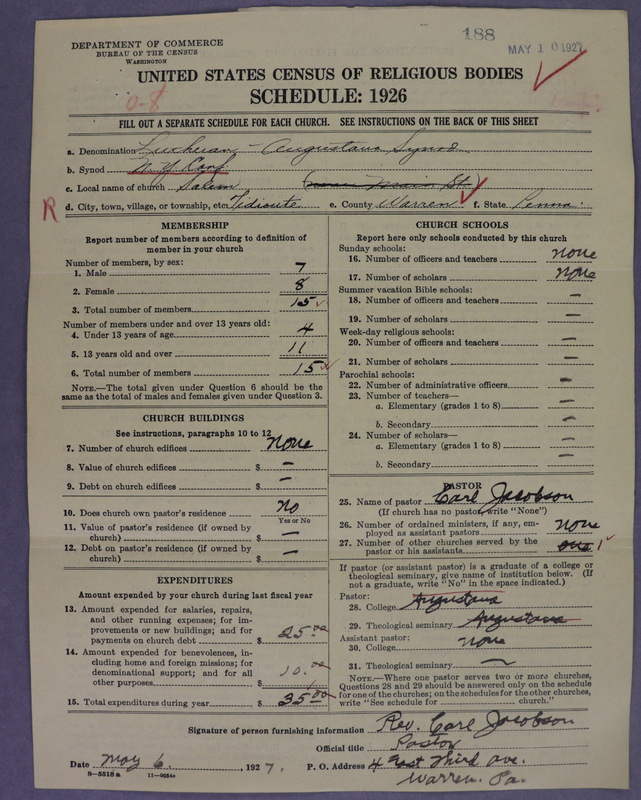 188
MAY 10 1927
DEPARTMENT OF COMMERCE
BUREAU OF THE CENSUS
WASHINGTON
UNITED STATES CENSUS OF RELIGIOUS BODIES
SCHEDULE: 1926
0-8
FILL OUT A SEPARATE SCHEDULE FOR EACH CHURCH. SEE INSTRUCTIONS ON THE BACK OF THIS SHEET
a. Denomination Lutheran - Augustana Synod
b. Synod N. Y. Conf
c. Local name of church Salem Main St.
R d. City, town, village, or township, etc. Tidioute e. County Warren f. State Penna.
MEMBERSHIP
Report number of members according to definition of
member in your church
Number of members, by sex:
1. Male 7
2. Female 8
3. Total number of members 15
Number of members under and over 13 years old:
4. Under 13 years of age 4
5. 13 years old and over 11
6. Total number of members 15
NOTE.—The total given under Question 6 should be the
same as the total of males and females given under Question 3.
CHURCH BUILDINGS
See instructions, paragraphs 10 to 12
7. Number of church edifices none
8. Value of church edifices $ —
9. Debt on church edifices $ —
10. Does church own pastor's residence? No
Yes or No
11. Value of pastor's residence (if owned by
church) $ —
12. Debt on pastor's residence (if owned by
church) $ —
EXPENDITURES
Amount expended by your church during last fiscal year
13. Amount expended for salaries, repairs,
and other running expenses; for im-
provements or new buildings; and for
payments on church debt $ 25.00
14. Amount expended for benevolences, in-
cluding home and foreign missions; for
denominational support; and for all
other purposes $ 10.00
15. Total expenditures during year $ 35.00
CHURCH SCHOOLS
Report here only schools conducted by this church
Sunday schools:
16. Number of officers and teachers none
17. Number of scholars none
Summer vacation Bible schools:
18. Number of officers and teachers —
19. Number of scholars —
Week-day religious schools:
20. Number of officers and teachers —
21. Number of scholars —
Parochial schools:
22. Number of administrative officers —
23. Number of teachers—
a. Elementary (grades 1 to 8) —
b. Secondary —
24. Number of scholars—
a. Elementary (grades 1 to 8) —
b. Secondary —
PASTOR
25. Name of pastor Carl Jacobson
(If church has no pastor, write "None")
26. Number of ordained ministers, if any, em-
ployed as assistant pastors none
27. Number of other churches served by the
pastor or his assistants one 1
If pastor (or assistant pastor) is a graduate of a college or
theological seminary, give name of institution below. (If
not a graduate, write "No" in the space indicated.)
Pastor:
28. College Augustana
29. Theological seminary Augustana
Assistant pastor:
30. College none
31. Theological seminary —
NOTE.—Where one pastor serves two or more churches,
Questions 28 and 29 should be answered only on the schedule
for one of the churches; on the schedules for the other churches,
write "See schedule for church."
Signature of person furnishing information Rev. Carl Jacobson
Official title Pastor
Date May 6, 1927. P. O. Address 4 East Third Ave.
Warren. Pa.
8—5518a 11—9084